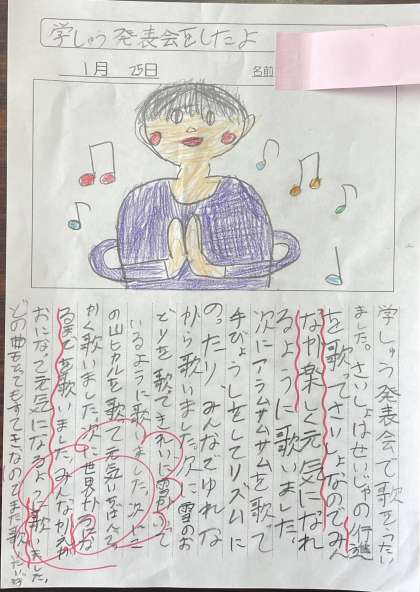 学しゅう発表会をしたよ
1月 25日
名前
学しゅう発表会で歌をうたい
ました。さいしょはせいじゃの行進
を歌ってさいしょなのでみん
なが楽しく元気になれ
るように歌いました。
次にアラムサムサムを歌って
手びょうしをしてリズムに
のったり、みんなでゆれな
がら歌いました。次に雪のお
どりを歌ってきれいに雪がふって
いるように歌いました。次にこ
の山ヒカルを歌って元気
かく歌いました。次に世界が一つにな
るまでを歌いました。みんながえが
おになって元気になるように歌いました。
どの曲もとてもすてきなのでまた歌いたいです